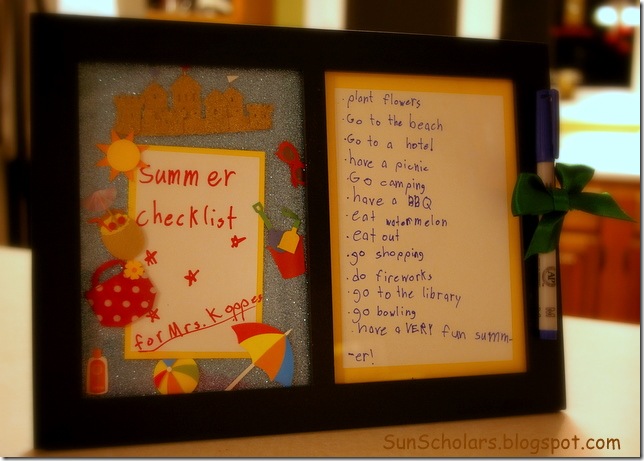 Summer
checklist
for Mrs. Koppes
· plant flowers
· Go to the beach
· Go to a hotel
· have a picnic
· Go camping
· have a BBQ
· eat watermelon
· eat out
· go shopping
· do fireworks
· go to the library
· go bowling
· have a VERY fun summ-
-er!
SunScholars.blogspot.com